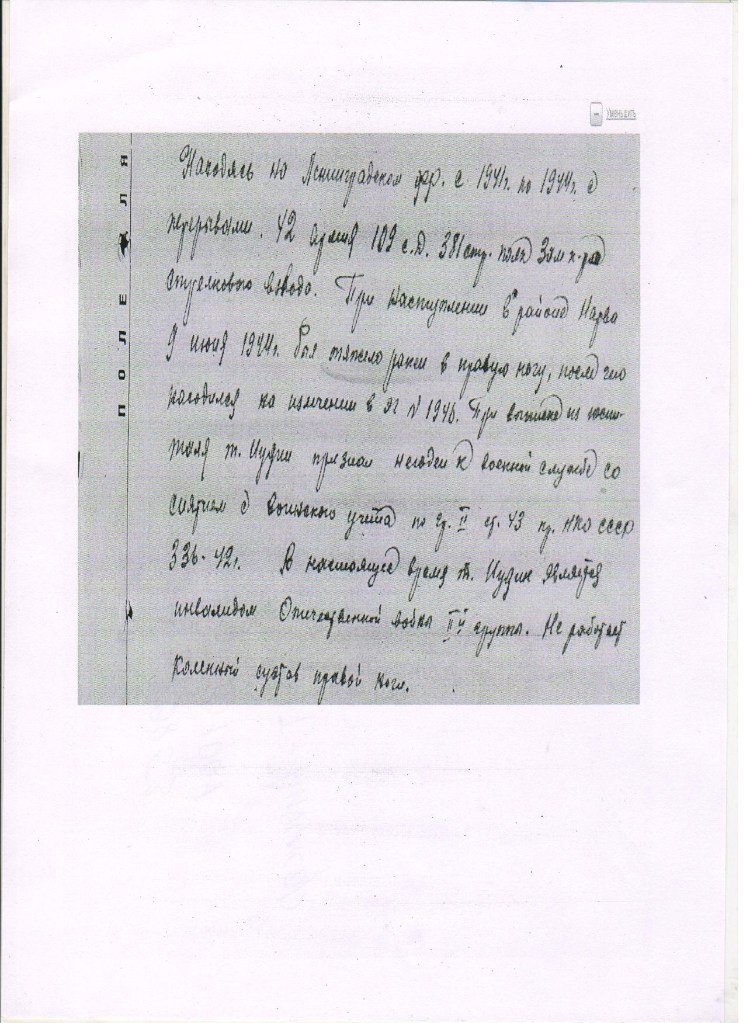 Уменьшить
ПОЛЕ ДЛЯ
Находясь на Ленинградском фр. с 1941г. по 1944г. с
перерывами. 42 армия 109 с.д. 381 стр. полк Зам к-ра
стрелкового взвода. При наступлении в районе Нарва
9 июня 1944г. был тяжело ранен в правую ногу, после чего
находился на излечении в ЭГ № 1946. При выписке из госпи-
таля т. Иудин признан негоден к военной службе со
снятием с воинского учета по гр. II ст. 43 пр. НКО СССР
336-42г. В настоящее время т. Иудин является
инвалидом Отечественной войны II й группы. Не работает
коленный сустав правой ноги.